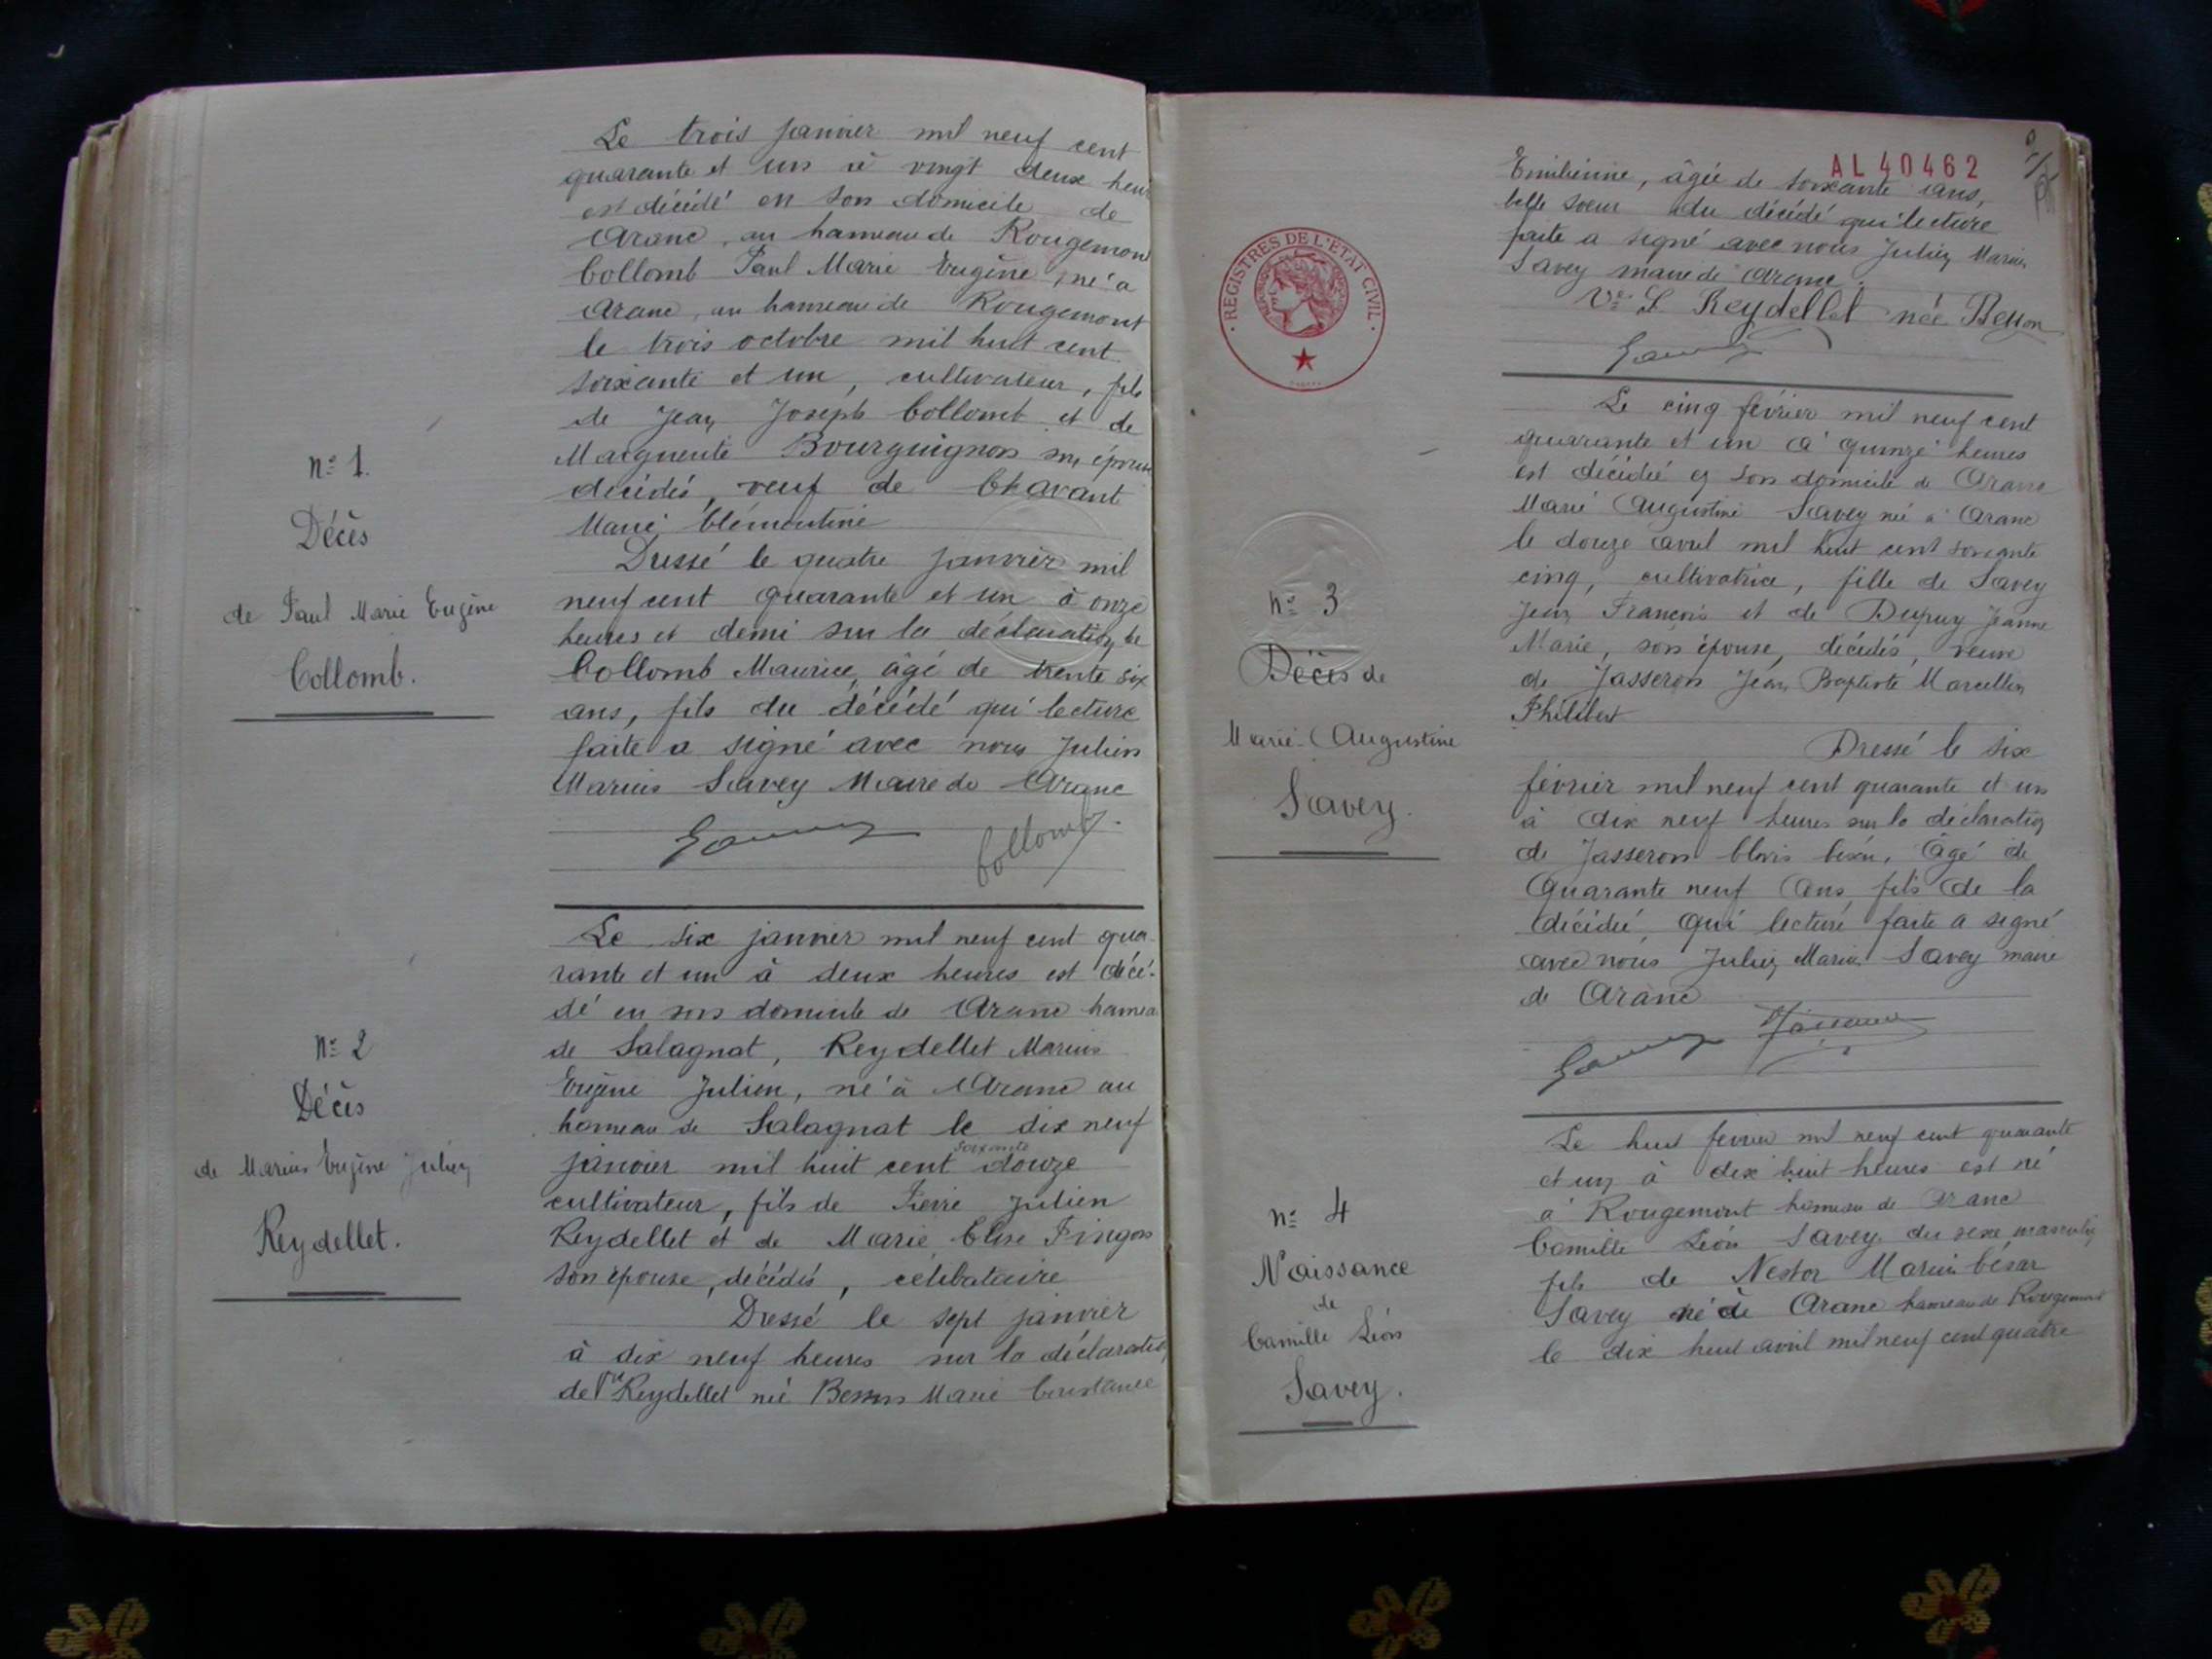 n° 1.
Décès
de Paul Marie Eugène
Collomb.
Le trois janvier mil neuf cent
quarante et un à vingt deux heur
est décédé en son domicile de
Aranc, au hameau de Rougemon
Collomb Paul Marie Eugène, né à
Aranc, au hameau de Rougemont
le trois octobre mil huit cent
soixante et un, cultivateur, fils
de Jean Joseph Collomb et de
Marguerite Bourguignon son épouse
décédés, veuf de Chavant
Marie Clémentine
Dressé le quatre janvier mil
neuf cent quarante et un à onze
heures et demi sur la déclaration de
Collomb Maurice, âgé de trente six
ans, fils du décédé qui lecture
faite a signé avec nous Julien
Marius Savey Maire de Aranc
Savey Collomb
n° 2
Décès
de Marius Eugène Julien
Reydellet.
Le six janvier mil neuf cent qua
rante et un à deux heures est décé-
dé en son domicile de Aranc hamea
de Salagnat, Reydellet Marius
Eugène Julien, né à Aranc au
hameau de Salagnat le dix neuf
janvier mil huit cent soixante douze
cultivateur, fils de Pierre Julien
Reydellet et de Marie Elise Pingon
son épouse, décédés, célibataire
Dressé le sept janvier
à dix neuf heures sur la déclaration
de Vve Reydellet née Besson Marie Constance
AL 40462
Emilienne, âgée de soixante ans,
belle soeur du décédé qui lecture
faite a signé avec nous Julien Marius
Savey maire de Aranc.
Vve L Reydellet née Besson
Savey
REGISTRES DE L'ETAT CIVIL
n° 3
Décès de
Marie-Augustine
Savey.
Le cinq février mil neuf cent
quarante et un à quinze heures
est décédée en son domicile de Aranc
Marie Augustine Savey née à Aranc
le douze avril mil huit cent soixante
cinq, cultivatrice, fille de Savey
Jean François et de Dupuy Jeanne
Marie, son épouse, décédés, veuve
de Jasseron Jean Baptiste Marcellin
Philibert
Dressé le six
février mil neuf cent quarante et un
à dix neuf heures sur la déclaration
de Jasseron Clovis âgé de
quarante neuf ans, fils de la
décédée, qui lecture faite a signé
avec nous Julien Marius Savey maire
de Aranc
Savey Jasseron
n° 4
Naissance
de
Camille Léon
Savey.
Le huit février mil neuf cent quarante
et un à dix huit heures est né
à Rougemont hameau de Aranc
Camille Léon Savey du sexe masculin
fils de Nestor Marius César
Savey né à Aranc hameau de Rougemont
le dix huit avril mil neuf cent quatre